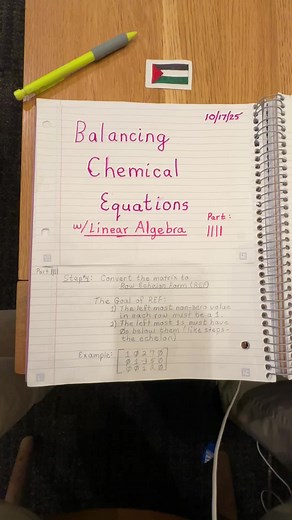 10/17/25
Balancing
Chemical
Equations
w/ Linear Algebra
Part:
||||
Convert the matrix to
Row Echelon Form (REF)
The Goal of REF:
1) The left most non-zero value
in each row must be a 1.
2) The left most 1s must have
0s below them (like steps-
the echelon)
Example: